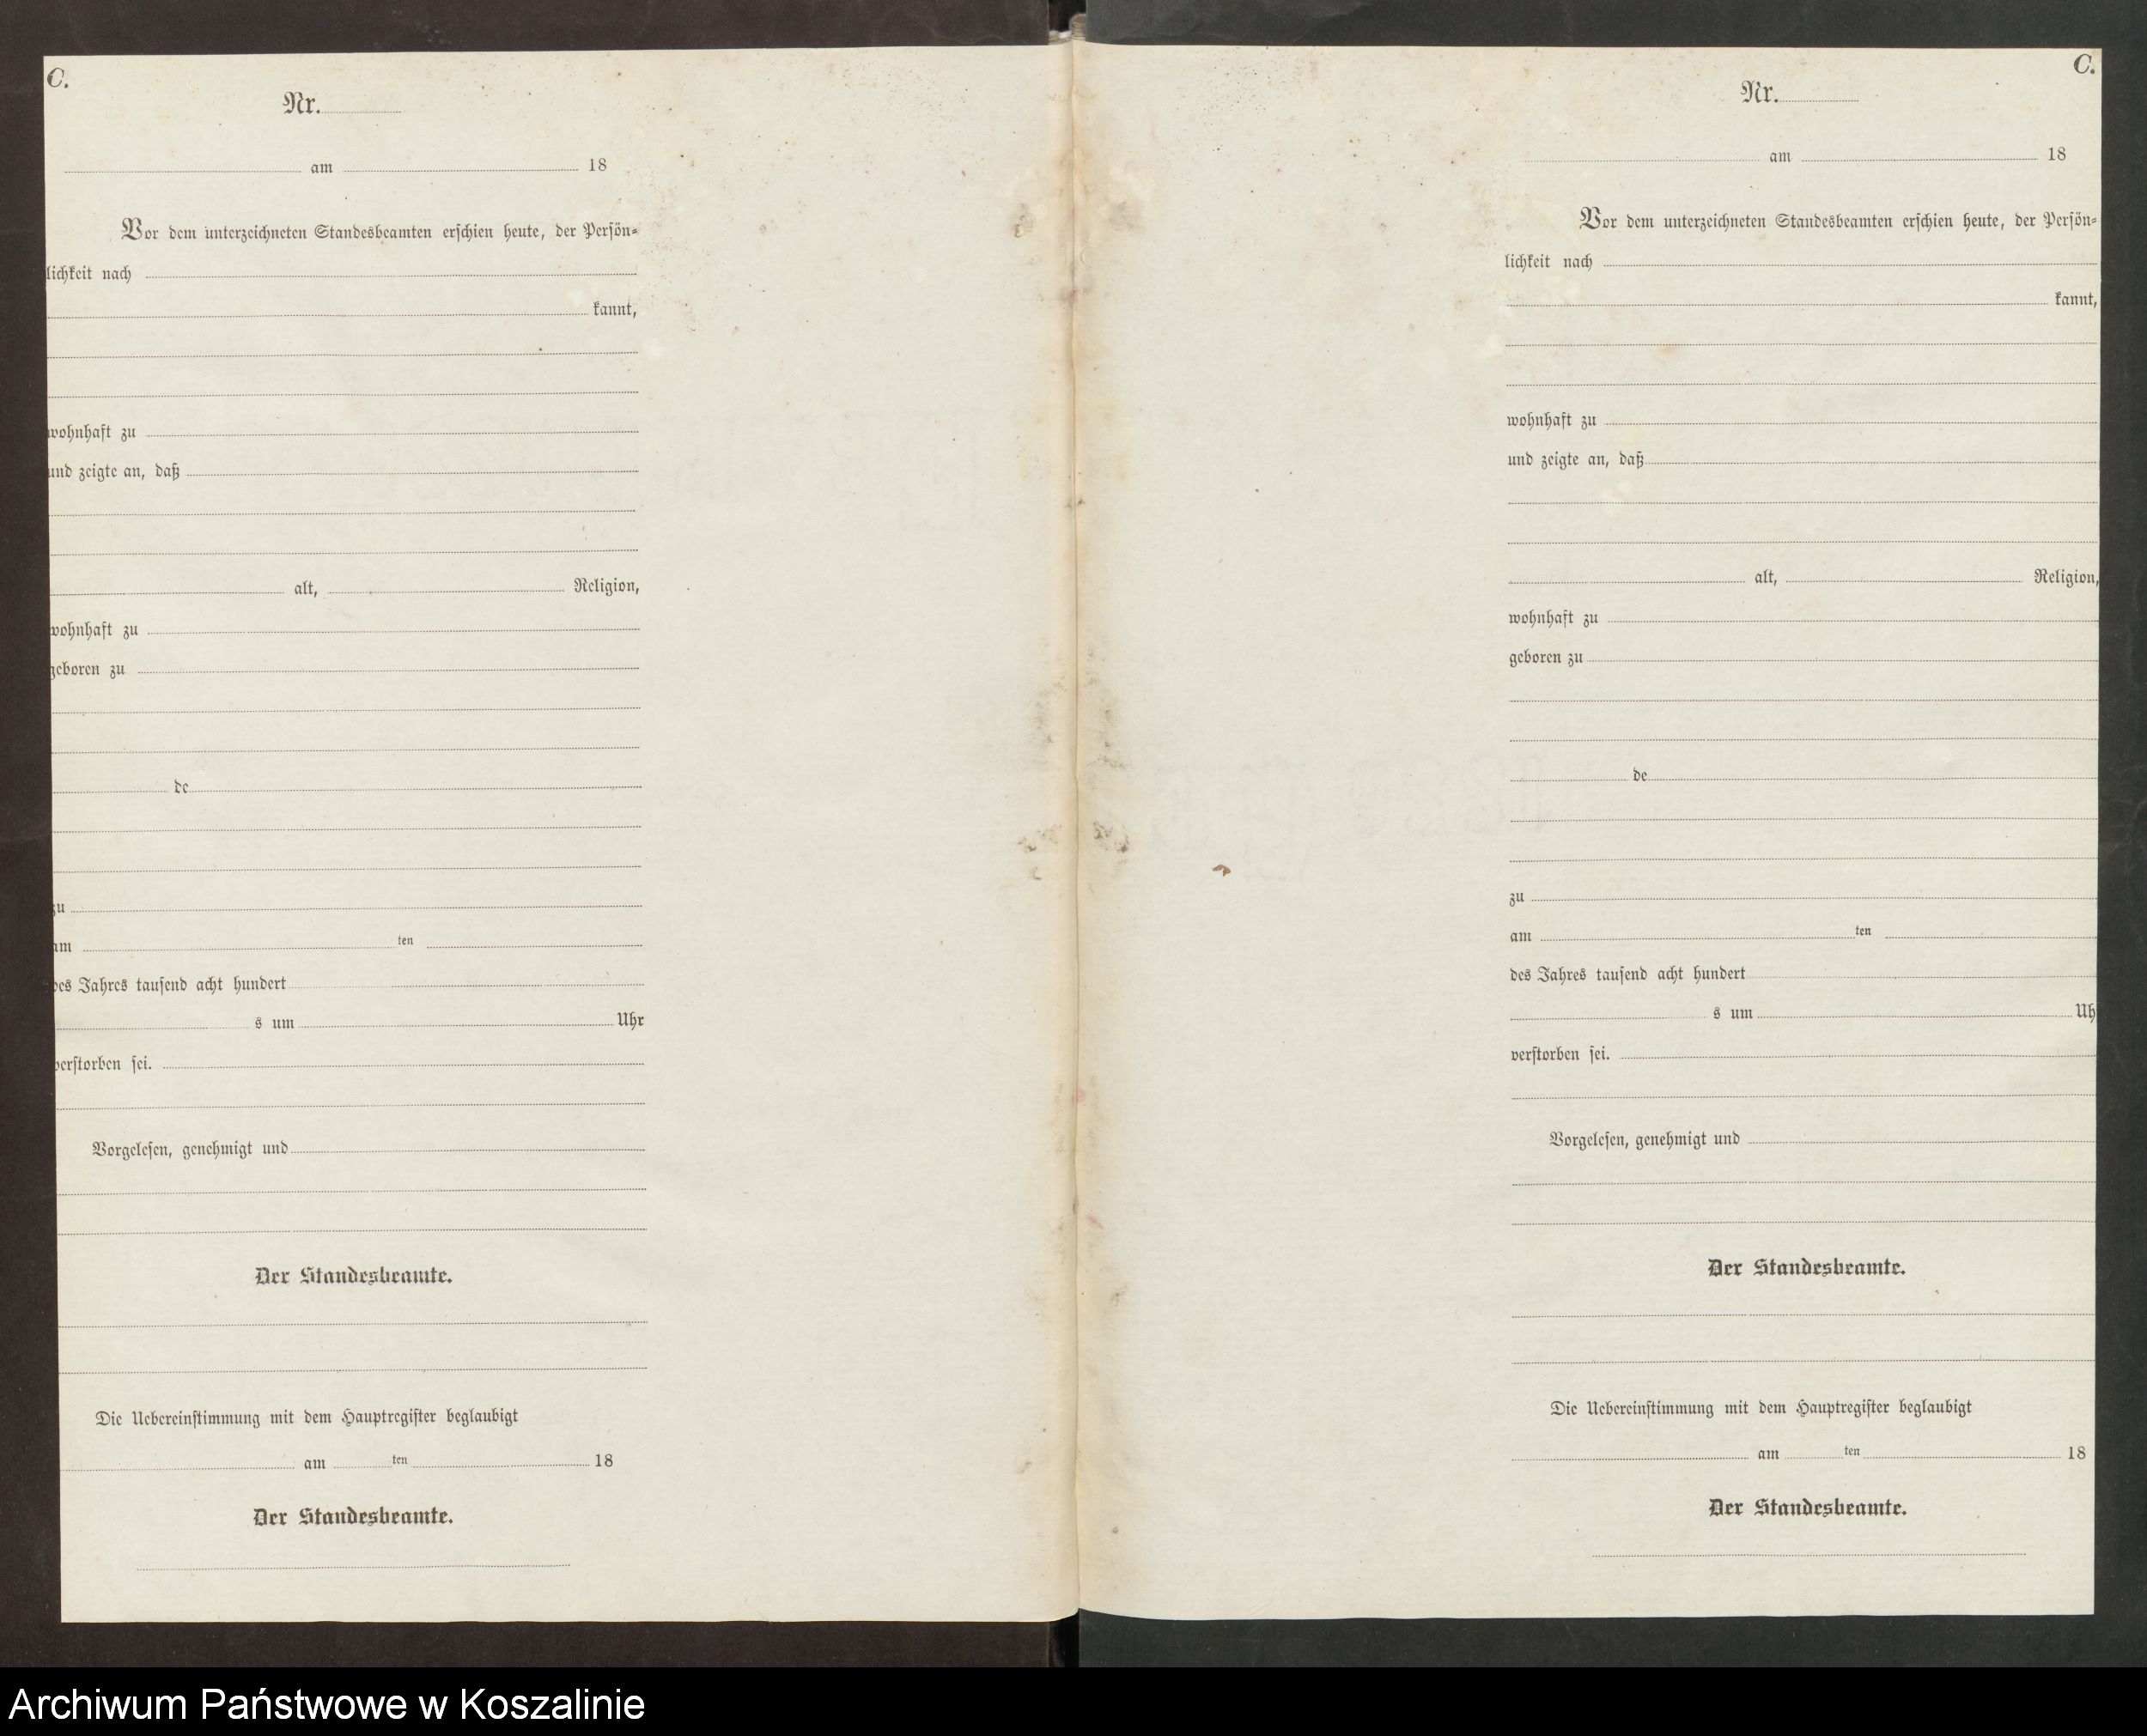 C.
Nr.
am 18
Vor dem unterzeichneten Standesbeamten erschien heute, der Persön-
lichkeit nach
kannt,
wohnhaft zu
und zeigte an, daß
alt, Religion,
wohnhaft zu
geboren zu
de
zu
am ten
des Jahres tausend acht hundert
s um Uhr
verstorben sei.
Vorgelesen, genehmigt und
Der Standesbeamte.
Die Uebereinstimmung mit dem Hauptregister beglaubigt
am ten 18
Der Standesbeamte.
C.
Nr.
am 18
Vor dem unterzeichneten Standesbeamten erschien heute, der Persön-
lichkeit nach
kannt,
wohnhaft zu
und zeigte an, daß
alt, Religion,
wohnhaft zu
geboren zu
de
zu
am ten
des Jahres tausend acht hundert
s um Uh
verstorben sei.
Vorgelesen, genehmigt und
Der Standesbeamte.
Die Uebereinstimmung mit dem Hauptregister beglaubigt
am ten 18
Der Standesbeamte.
Archiwum Państwowe w Koszalinie